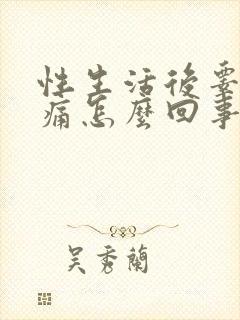 性生活後要
痛怎麼回事
吴秀蘭